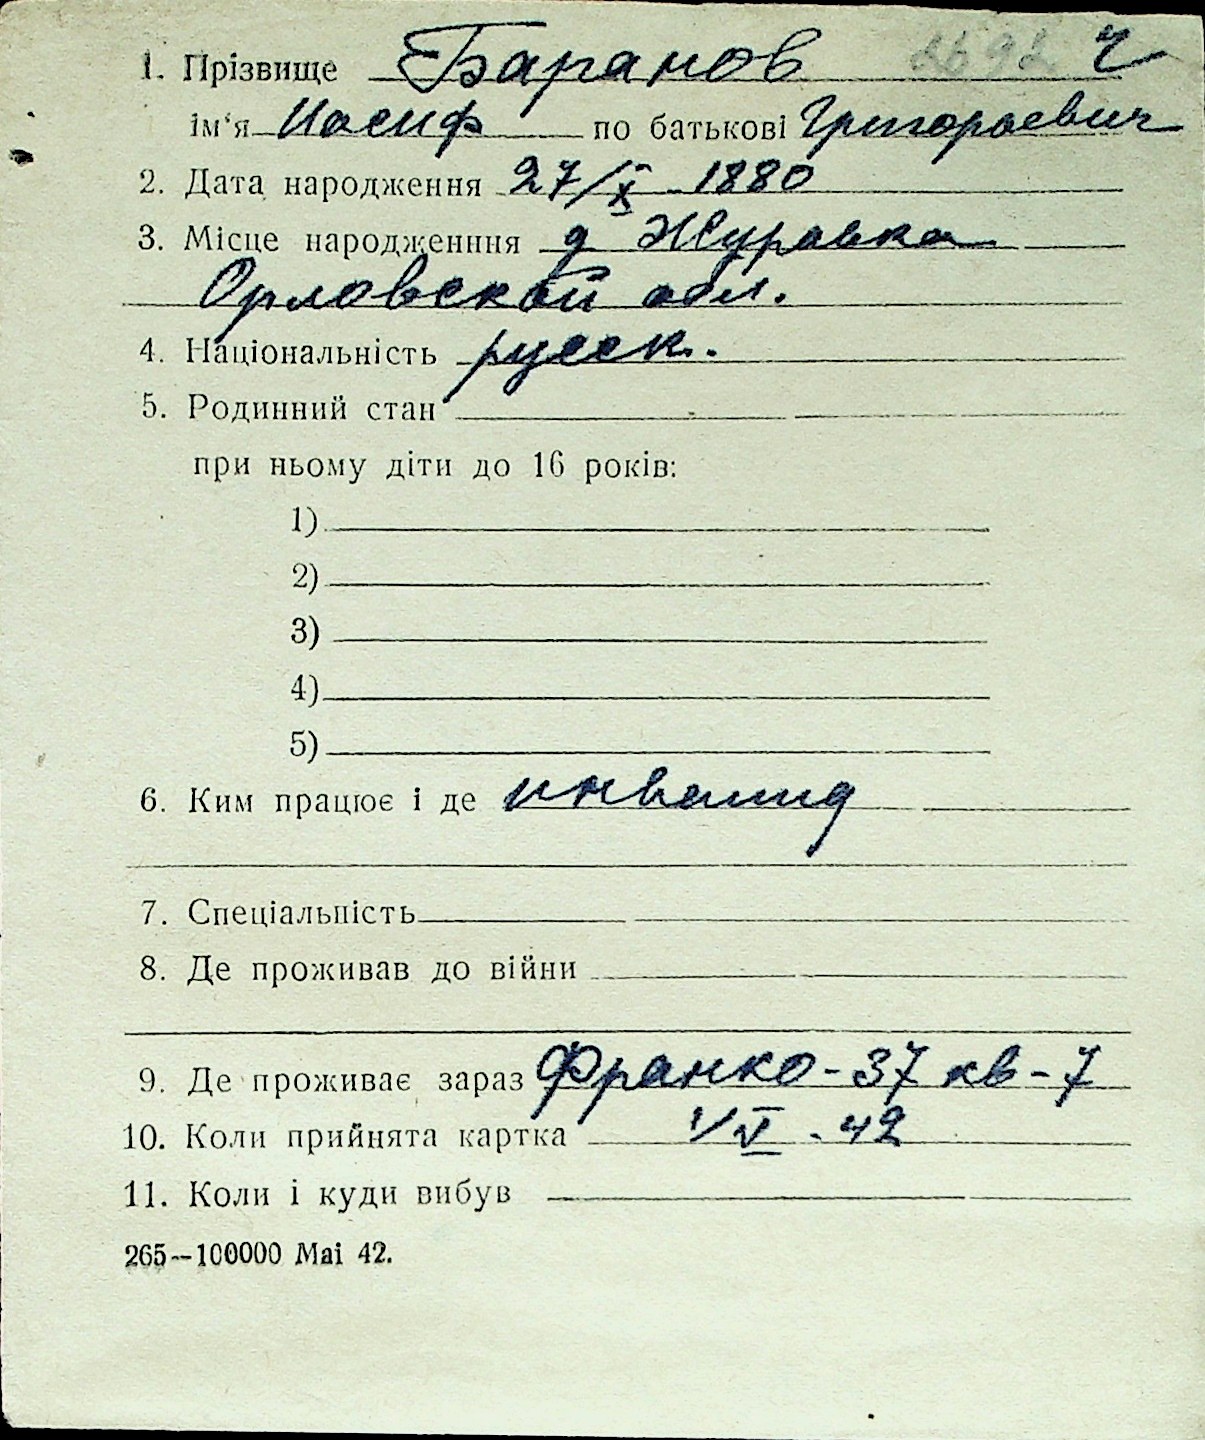 1. Прізвище Баранов 2692 ч
ім'я Иосиф по батькові Григорьевич
2. Дата народження 27/X 1880
3. Місце народженння д Журавка
Орловской обл.
4. Національність русск.
5. Родинний стан
при ньому діти до 16 років:
1)
2)
3)
4)
5)
6. Ким працює і де инвалид
7. Спеціальність
8. Де проживав до війни
9. Де проживає зараз Франко-37 кв-7
10. Коли прийнята картка 1/V-42
11. Коли і куди вибув
265—100000 Mai 42.